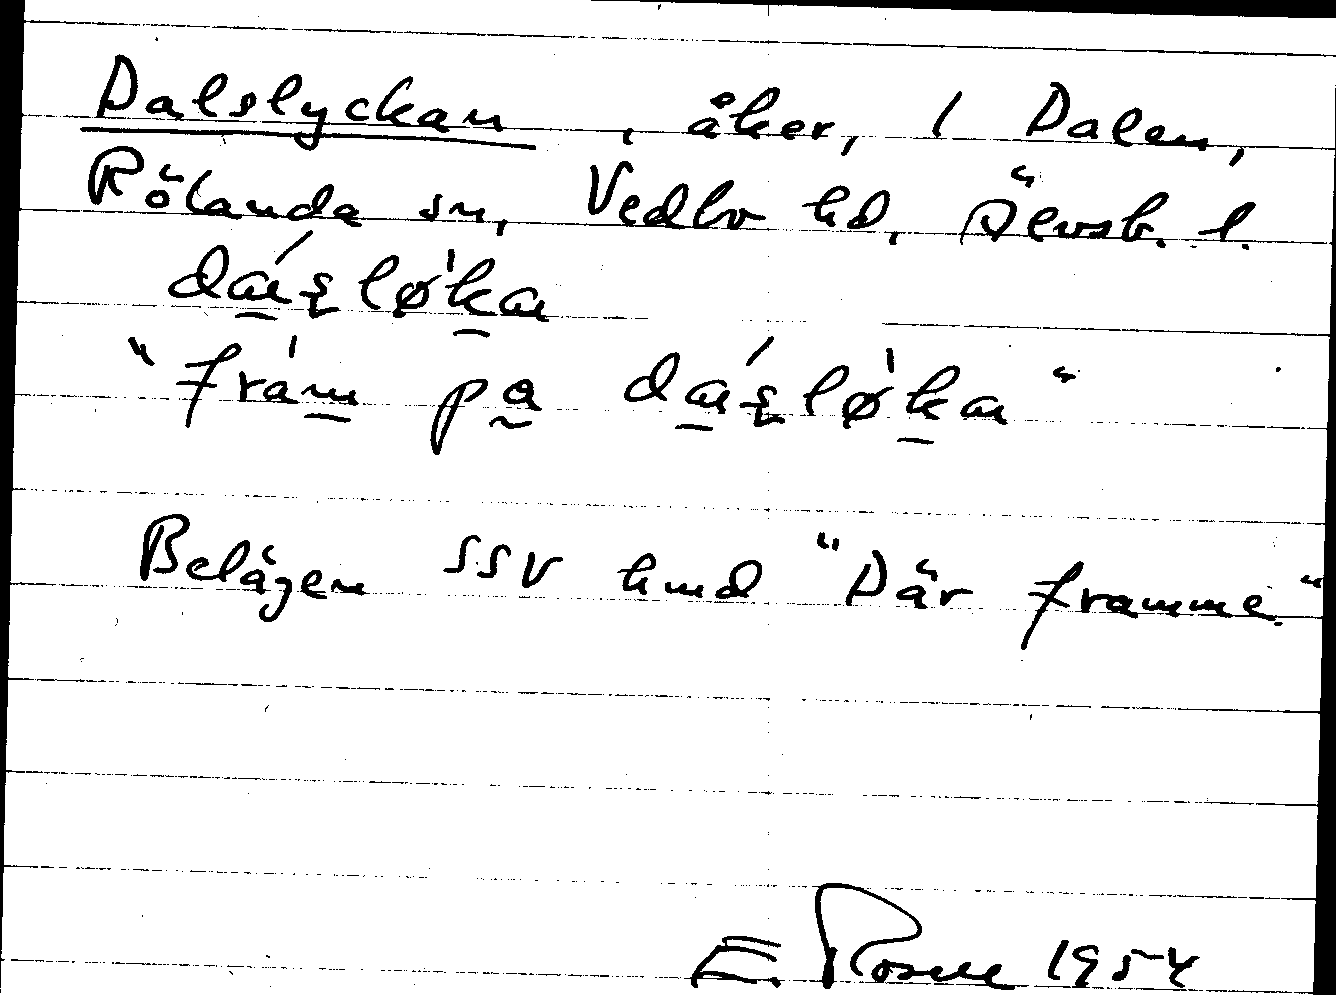 Dalslyckan, åker, 1 Dalen,
Rölanda sn, Vedbo hd, Älvsb. l.
dά̱ʂlø̀ḵα
"frà̱m pa̰ dά̱ʂlø̀ḵα"
Belägen SSV hmd "Där framme."
E. Rosell 1954